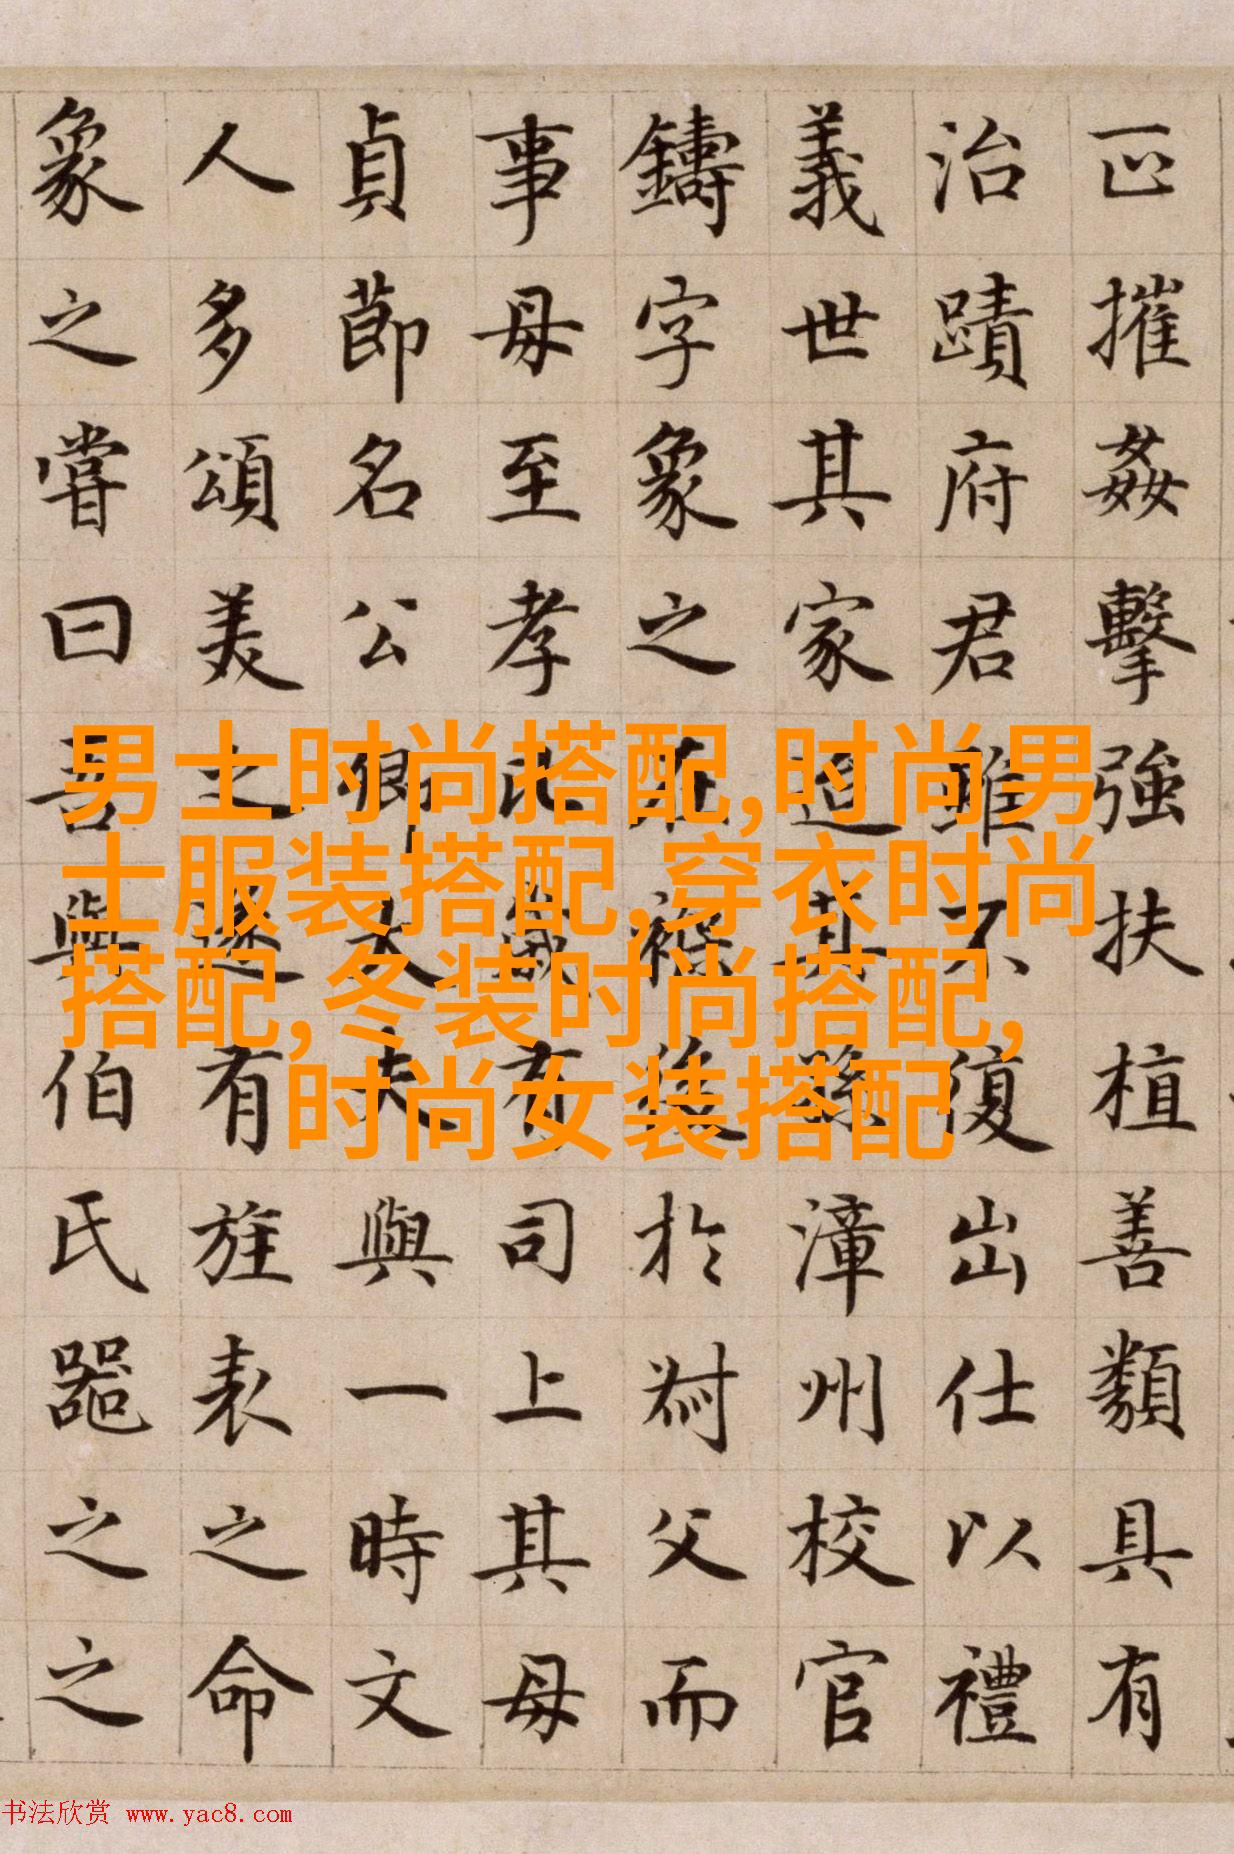 正摧姦擊強扶植善類具有
治蹟府君雖不復出仕以禮
義世其家迨其孫漳州校官
鑄字象之在後於父而
事母至孝有司上其母
貞節名公卿大夫與一時文
人多頌美之遂有旌表之命
象之嘗曰吾與伯氏器之之
男士时尚搭配,时尚男
士服装搭配,穿衣时尚
搭配,冬装时尚搭配,
时尚女装搭配
书法欣赏 www.yac8.com